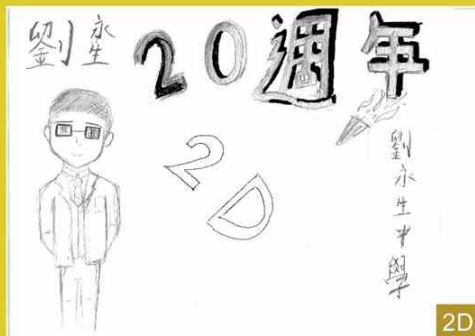 劉永生
20週年
2D
劉永生中學
2D